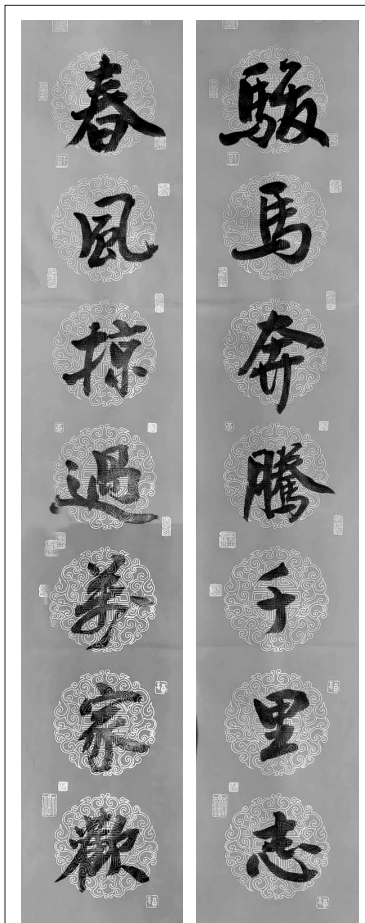 駿馬奔騰千里志
春風掠過萬家歡